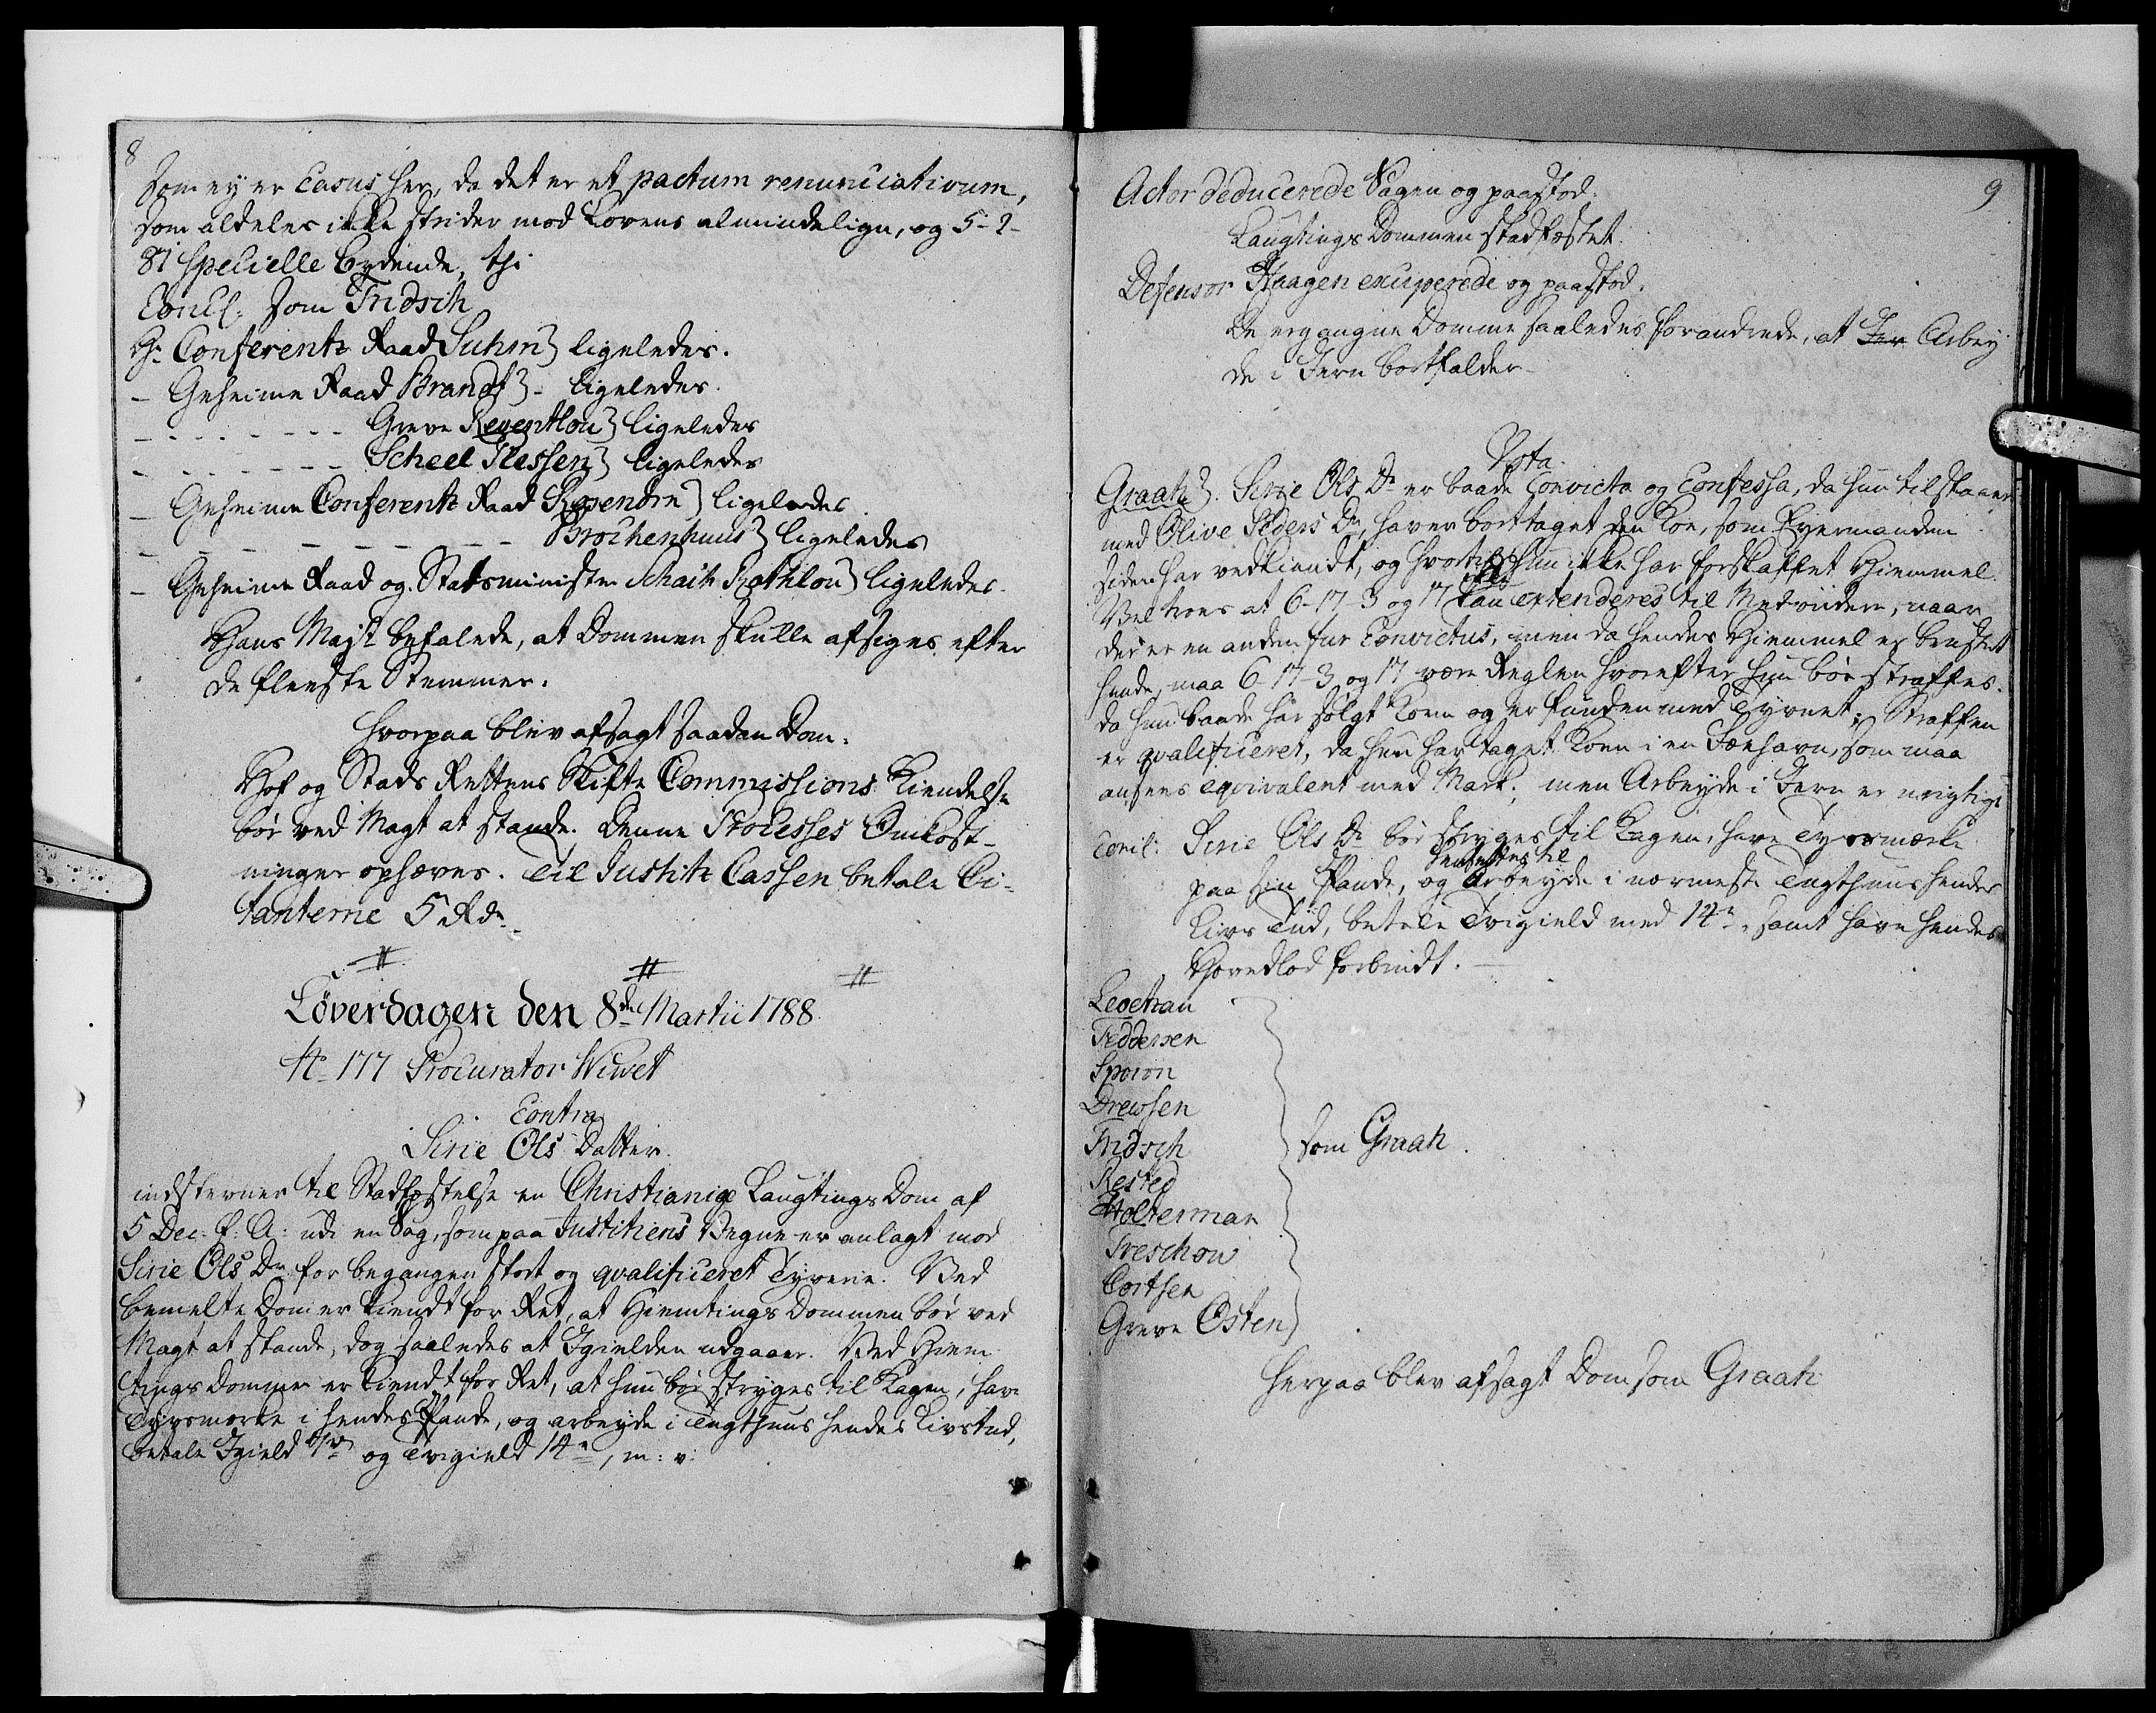 8
som ej er Casus her, da det er et pactum renunciativum,
som aldeles ikke strider mod Lovens almindelige, og 5-2-
81 specielle bydende, thi
Concl: som Fridsch
Hr Conferentz Raad Suhm} ligeledes.
- Geheime Raad Brandt} - ligeledes.
- - - - - - - - Greve Reventlou} ligeledes
- - - - - - - - Scheel Plessen} ligeledes
- Geheime Conferentz Raad Rosencrone} ligeledes.
- - - - - - - - Brochenhuus} ligeledes
- Geheime Raad og Statsminister Schack Rathlou} ligeledes.
Hans Majst befalede, at Dommen skulle afsiges efter
de fleeste Stemmer.
Hvorpaa blev afsagt saadan Dom.
Hof og Stads Rettens Skifte Commissions Kiendelse
bør ved Magt at stande. Denne Processes Omkost-
ninger ophæves. Til Justitz Cassen betale Ci-
tanterne 5 Rdr.
Löverdagen den 8de Martii 1788
No 177 Procurator Wiwet
Contra
Sirie Ols Datter.
indstevner til Stadfæstelse en Christianiæ Laugtings Dom af
5 Dec: f: A: udi en Sag, som paa Justitiens Vegne er anlagt mod
Sirie Ols Dr for begangen stort og qvalificeret Tyverie. Ved
bemelte Dom er kiendt for Ret, at Hiemtings Dommen bør ved
Magt at stande, dog saaledes at Igielden udgaaer. Ved Hiem-
tings Dommen er kiendt for Ret, at hun bør stryges til Kagen, have
Tyvsmærke i hendes Pande, og arbeyde i Tugthuus hendes Livstid,
betale Igield og Tvigield 14 r, m: v:
9
Actor deducerede Sagen og paastod.
Laugtings Dommen stadfæstet.
Defensor Haagen exciperede og paastod.
De ergangne Domme saaledes forandrede, at Jer Arbey
de i Jern bortfalder.
Vota.
Graah}. Sirie Ols Dr er baade Convicta og Confessa, da hun tilstaaer
med Olive Peders Dr, haver borttaget den Koe, som Eyermanden
siden har vedkiendt, og hvortil hun ikke har forskaffet Hiemmel.
Vel troes at 6-17-3 og 17 kan extenderes til Medvidere, naar
der er en anden fur Convictus, men da hendes Hiemmel er brustet
hende, maa 6-17-3 og 17 være Reglen hvorefter hun bør straffes.
da hun baade har solgt Koen og er funden med Tyvnet. Straffen
er qvalificeret, da hun har taget Koen i en Fæehavn, som maa
ansees eqvivalent med Mark; men Arbeyde i Jern er urigtig
Concl: Sirie Ols Dr bør stryges til Kagen, have Tyvsmærke
paa sin Pande, og hensettes til Arbeyde i nærmeste Tugthuus hendes
Livs Tiid, betale Tvigield med 14 r, samt have hendes
Hovedlod forbrudt.
Levetzau
Feddersen
Sporon
Drewsen
Fridsch } som Graah.
Rested
Wolterman
Treschow
Cortsen
Greve Osten}
Herpaa blev afsagt Dom som Graah